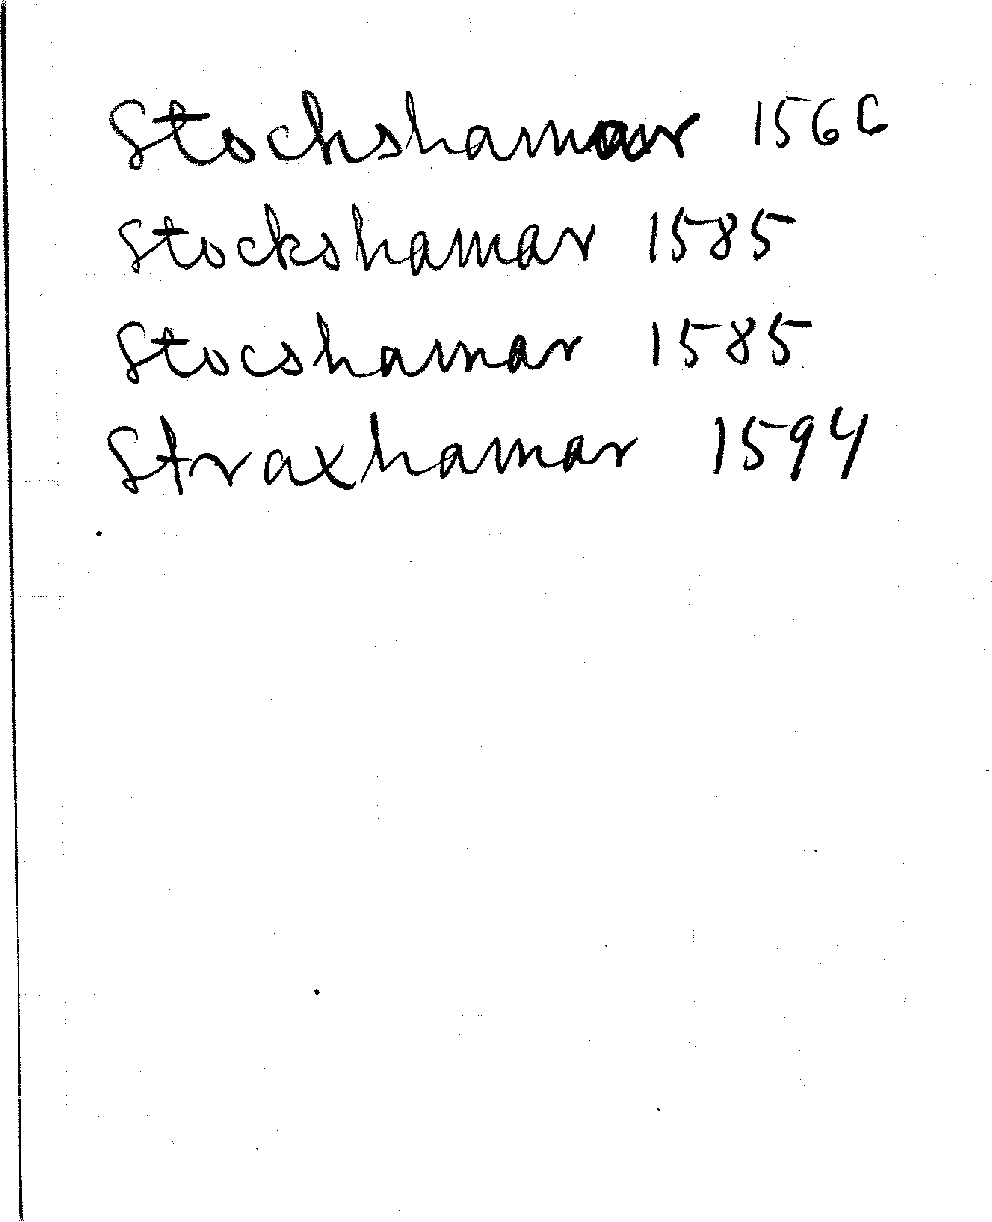 Stockshamar 1566
Stockshamar 1585
Stocshamar 1585
Straxhamar 1594